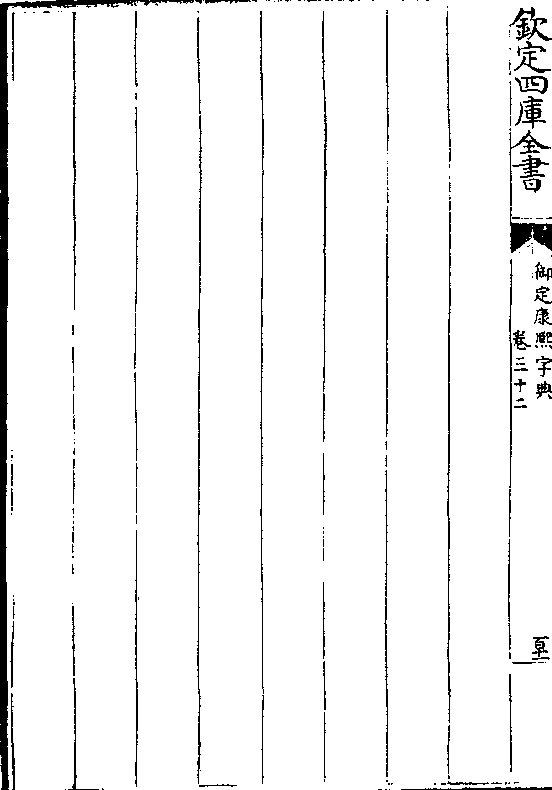 欽定四庫全書
御定康熙字典
卷三十二